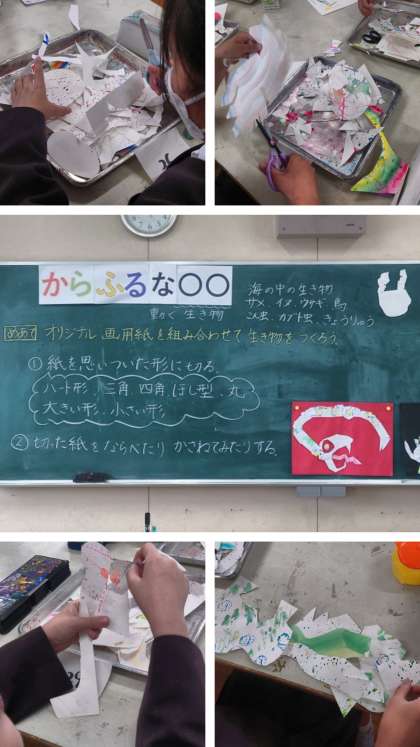 からふるな〇〇
動く生き物
海の中の生き物
サメ、イヌ、ウサギ、鳥
こん虫、カブト虫、きょうりゅう
めあて オリジナル画用紙を組み合わせて生き物をつくろう。
① 紙を思いついた形に切る。
ハート形、三角、四角、ほし型、丸
大きい形、小さい形
② 切った紙をならべたり かさねてみたりする。